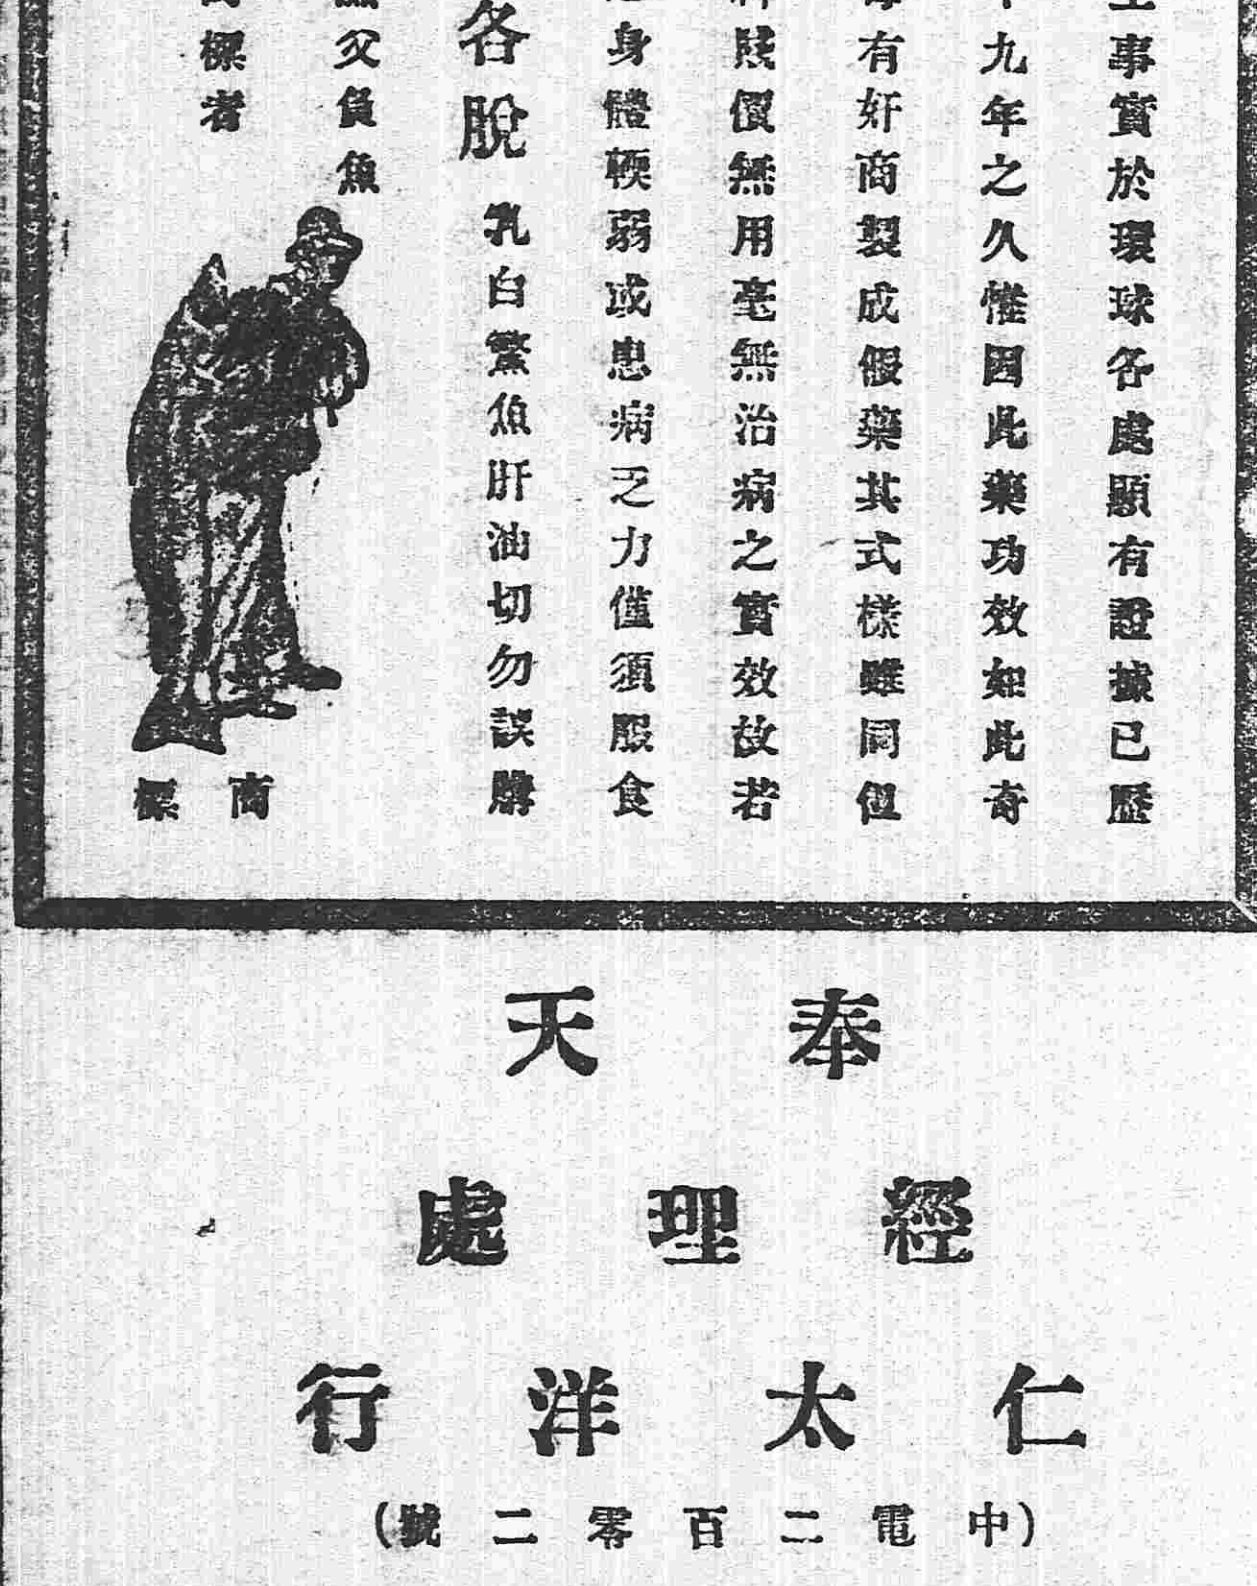 事實於環球各處顯有證據已歷
九年之久惟因此藥功效如此奇
有奸商製成假藥其式樣雖同但
賤價無用毫無治病之實效故若
身體輭弱或患病乏力僅須服食
各脫乳白鰵魚肝油切勿誤購
父負魚
標者
商標
奉天
經理處
仁太洋行
(中電二百零二號)